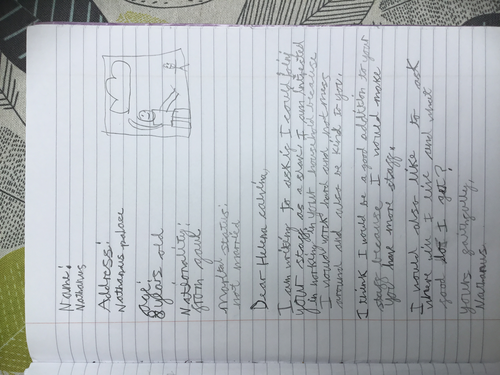 Name:
Nathanus
Address:
Nathanus palace
age:
years old
Nationality:
not married
Dear Helena
I am writing to ask if I could join
your staff as a slave. I am intrested
in working in your household because
I would work hard and not mess
around and also be kind to you.
I think I would be a good addition to your
staff because I would make
you have more staff.
I would also like to ask
where do I live and what
food do I get?
yours faithfully,
Nathanus